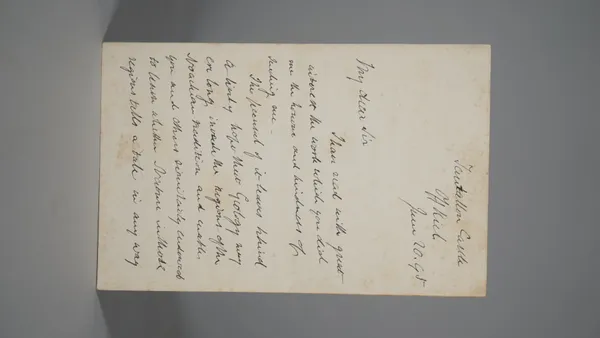 Tantallon Castle
Off Kiel
June 20. 95
My dear Sir
I have read with great
interest the work which you did
me the honour and kindness of
sending me –
The perusal of it leaves behind
a lively hope that Geology may
ere long, invade the regions of the
Noachian tradition and enable
you and others similarly endowed
to learn whether Nature in those
regions tells a tale in any way